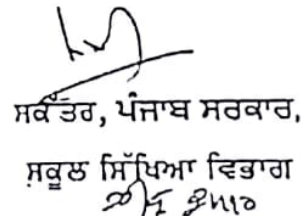 ਸਕੱਤਰ, ਪੰਜਾਬ ਸਰਕਾਰ,
ਸਕੂਲ ਸਿੱਖਿਆ ਵਿਭਾਗ